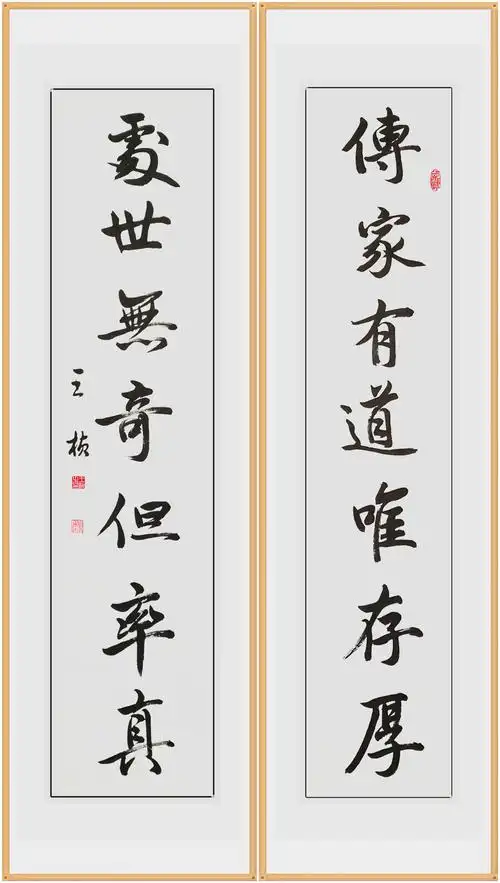 傳家有道唯存厚
處世無奇但率真
王楨